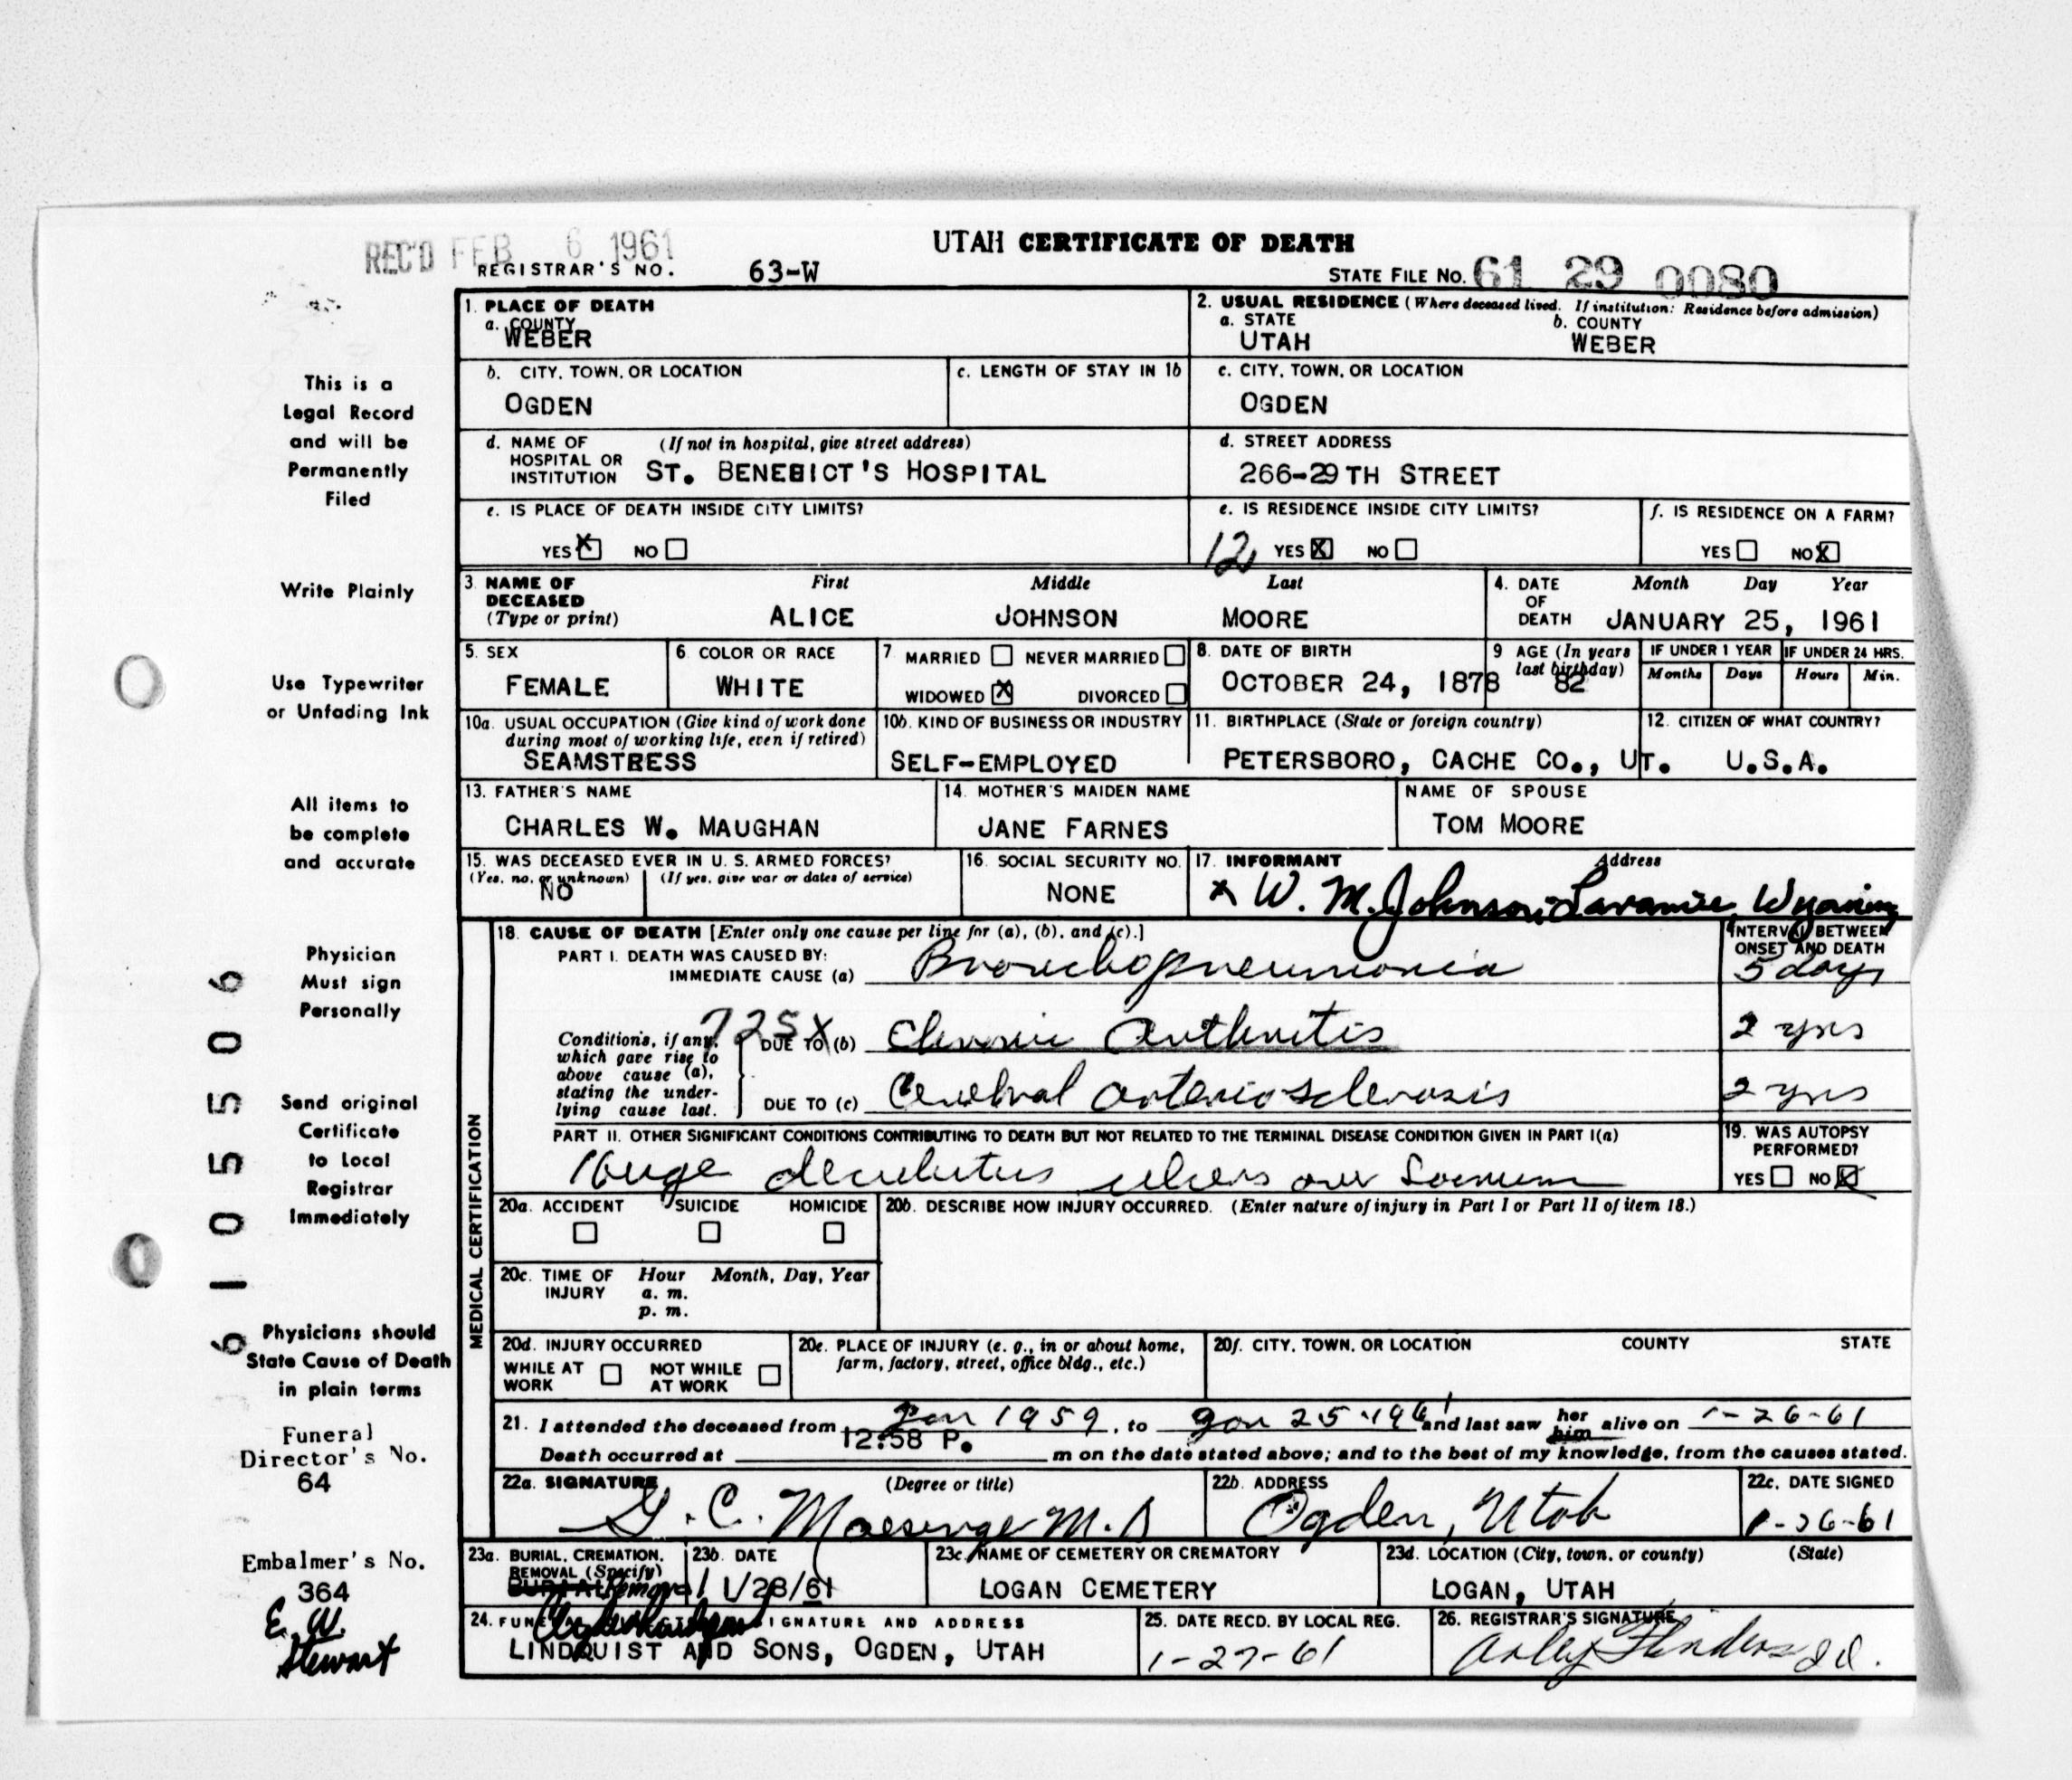 REC'D FEB 6 1961
UTAH CERTIFICATE OF DEATH
REGISTRAR'S NO. 63-W
STATE FILE NO. 61 29 0080
This is a
Legal Record
and will be
Permanently
Filed
Write Plainly
Use Typewriter
or Unfading Ink
All items to
be complete
and accurate
Physician
Must sign
Personally
Send original
Certificate
to Local
Registrar
Immediately
Physicians should
State Cause of Death
in plain terms
Funeral
Director's No.
64
Embalmer's No.
364
E. W.
Stewart
6105506
1. PLACE OF DEATH
a. COUNTY
WEBER
2. USUAL RESIDENCE (Where deceased lived. If institution: Residence before admission)
a. STATE b. COUNTY
UTAH WEBER
b. CITY, TOWN, OR LOCATION
OGDEN
c. LENGTH OF STAY IN 1b
c. CITY, TOWN, OR LOCATION
OGDEN
d. NAME OF (If not in hospital, give street address)
HOSPITAL OR
INSTITUTION ST. BENEBICT'S HOSPITAL
d. STREET ADDRESS
266-29TH STREET
e. IS PLACE OF DEATH INSIDE CITY LIMITS?
YES X NO
e. IS RESIDENCE INSIDE CITY LIMITS?
12 YES X NO
f. IS RESIDENCE ON A FARM?
YES NO X
3. NAME OF First Middle Last
DECEASED
(Type or print) ALICE JOHNSON MOORE
4. DATE Month Day Year
OF
DEATH JANUARY 25, 1961
5. SEX
FEMALE
6. COLOR OR RACE
WHITE
7 MARRIED NEVER MARRIED
WIDOWED X DIVORCED
8. DATE OF BIRTH
OCTOBER 24, 1878
9 AGE (In years
last birthday)
82
IF UNDER 1 YEAR IF UNDER 24 HRS.
Months Days Hours Min.
10a. USUAL OCCUPATION (Give kind of work done
during most of working life, even if retired)
SEAMSTRESS
10b. KIND OF BUSINESS OR INDUSTRY
SELF-EMPLOYED
11. BIRTHPLACE (State or foreign country)
PETERSBORO, CACHE CO., UT.
12. CITIZEN OF WHAT COUNTRY?
U.S.A.
13. FATHER'S NAME
CHARLES W. MAUGHAN
14. MOTHER'S MAIDEN NAME
JANE FARNES
NAME OF SPOUSE
TOM MOORE
15. WAS DECEASED EVER IN U. S. ARMED FORCES?
(Yes, no, or unknown) (If yes, give war or dates of service)
NO
16. SOCIAL SECURITY NO.
NONE
17. INFORMANT Address
x W. M. Johnson, Laramie, Wyoming
MEDICAL CERTIFICATION
18. CAUSE OF DEATH [Enter only one cause per line for (a), (b), and (c).]
INTERVAL BETWEEN
ONSET AND DEATH
PART I. DEATH WAS CAUSED BY:
IMMEDIATE CAUSE (a) Bronchopneumonia 5 days
725X
Conditions, if any,
which gave rise to
above cause (a),
stating the under-
lying cause last.
DUE TO (b) Chronic Arthritis 2 yrs
DUE TO (c) Cerebral arteriosclerosis 2 yrs
PART II. OTHER SIGNIFICANT CONDITIONS CONTRIBUTING TO DEATH BUT NOT RELATED TO THE TERMINAL DISEASE CONDITION GIVEN IN PART I(a)
Huge decubitus ulcers over Sacrum
19. WAS AUTOPSY
PERFORMED?
YES NO X
20a. ACCIDENT SUICIDE HOMICIDE
20b. DESCRIBE HOW INJURY OCCURRED. (Enter nature of injury in Part I or Part II of item 18.)
20c. TIME OF Hour Month, Day, Year
INJURY a. m.
p. m.
20d. INJURY OCCURRED
WHILE AT NOT WHILE
WORK AT WORK
20e. PLACE OF INJURY (e. g., in or about home,
farm, factory, street, office bldg., etc.)
20f. CITY, TOWN, OR LOCATION COUNTY STATE
21. I attended the deceased from Jan 1959, to Jan 25-1961 and last saw her him alive on 1-26-61
Death occurred at 12:58 P. m on the date stated above; and to the best of my knowledge, from the causes stated.
22a. SIGNATURE (Degree or title)
G. C. M.D
22b. ADDRESS
Ogden, Utah
22c. DATE SIGNED
1-26-61
23a. BURIAL, CREMATION,
REMOVAL (Specify)
BURIAL Removal
23b. DATE
1/28/61
23c. NAME OF CEMETERY OR CREMATORY
LOGAN CEMETERY
23d. LOCATION (City, town, or county) (State)
LOGAN, UTAH
24. FUNERAL DIRECTOR'S SIGNATURE AND ADDRESS
LINDQUIST AND SONS, OGDEN, UTAH
25. DATE RECD. BY LOCAL REG.
1-27-61
26. REGISTRAR'S SIGNATURE